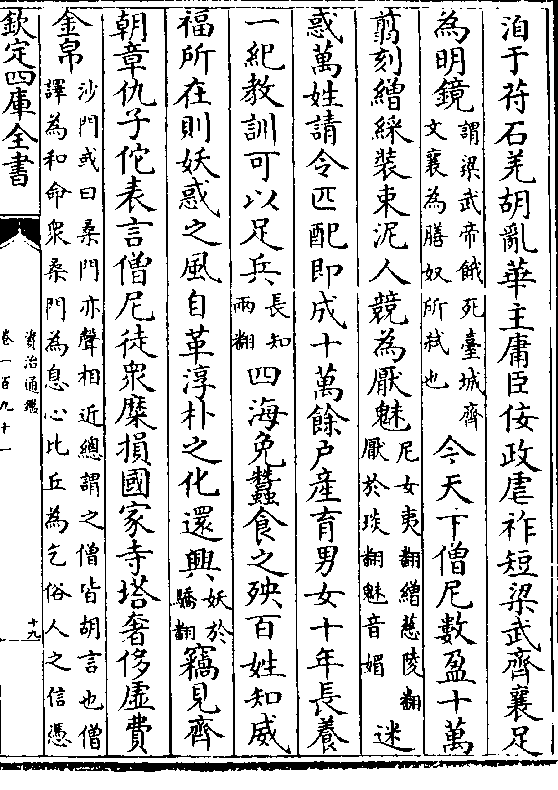 洎于苻石羌胡亂華主庸臣佞政虐祚短梁武齊襄足
為明鏡謂梁武帝餓死臺城齊文襄為膳奴所弒也今天下僧尼數盈十萬
翦刻繒綵裝束泥人競為厭魅尼女夷翻繒慈陵翻厭於琰翻魅音媚迷
惑萬姓請令匹配即成十萬餘户產育男女十年長養
一紀教訓可以足兵長知兩翻四海免蠶食之殃百姓知威
福所在則妖惑之風自革淳朴之化還興妖於驕翻竊見齊
朝章仇子佗表言僧尼徒衆糜損國家寺塔奢侈虛費
金帛沙門或曰桑門亦聲相近總謂之僧皆胡言也僧譯為和命衆桑門為息心比丘為乞俗人之信憑
欽定四庫全書
資治通鑑
卷一百九十一
十九